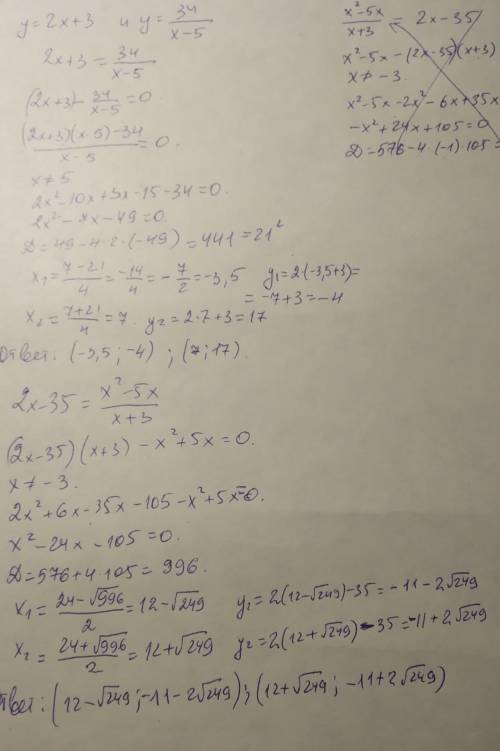 y=2x+3 и y=34/(x-5)
2x+3=34/(x-5)
(2x+3)-34/(x-5)=0
((2x+3)(x-5)-34)/(x-5)=0.
x≠5
2x²-10x+3x-15-34=0.
2x²-7x-49=0.
D=49-4·2·(-49)=441=21²
x₁=(7-21)/4=-14/4=-7/2=-3,5 y₁=2·(-3,5+3)=
=-7+3=-4
x₂=(7+21)/4=7. y₂=2·7+3=17
Ответ: (-3,5;-4) ; (7;17).
(x²-5x)/(x+3)=2x-35
x²-5x-(2x-35)(x+3)
x≠-3.
x²-5x-2x²-6x+35x
-x²+24x+105=0
D=576-4·(-1)·105=
2x-35=(x²-5x)/(x+3)
(2x-35)(x+3)-x²+5x=0.
x≠-3.
2x²+6x-35x-105-x²+5x=0.
x²-24x-105=0.
D=576+4·105=996.
x₁=(24-√996)/2=12-√249 y₁=2(12-√249)-35=-11-2√249
x₂=(24+√996)/2=12+√249 y₂=2(12+√249)-35=-11+2√249
Ответ: (12-√249;-11-2√249);(12+√249; -11+2√249)